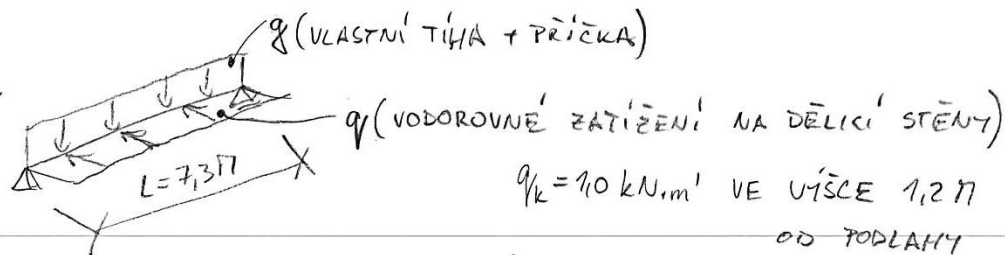 g (VLASTNÍ TÍHA + PŘÍČKA)
q (VODOROVNÉ ZATÍŽENÍ NA DĚLICÍ STĚNY)
L=7,3M
qk = 1,0 kN.m' VE VÝŠCE 1,2M
OD PODLAHY